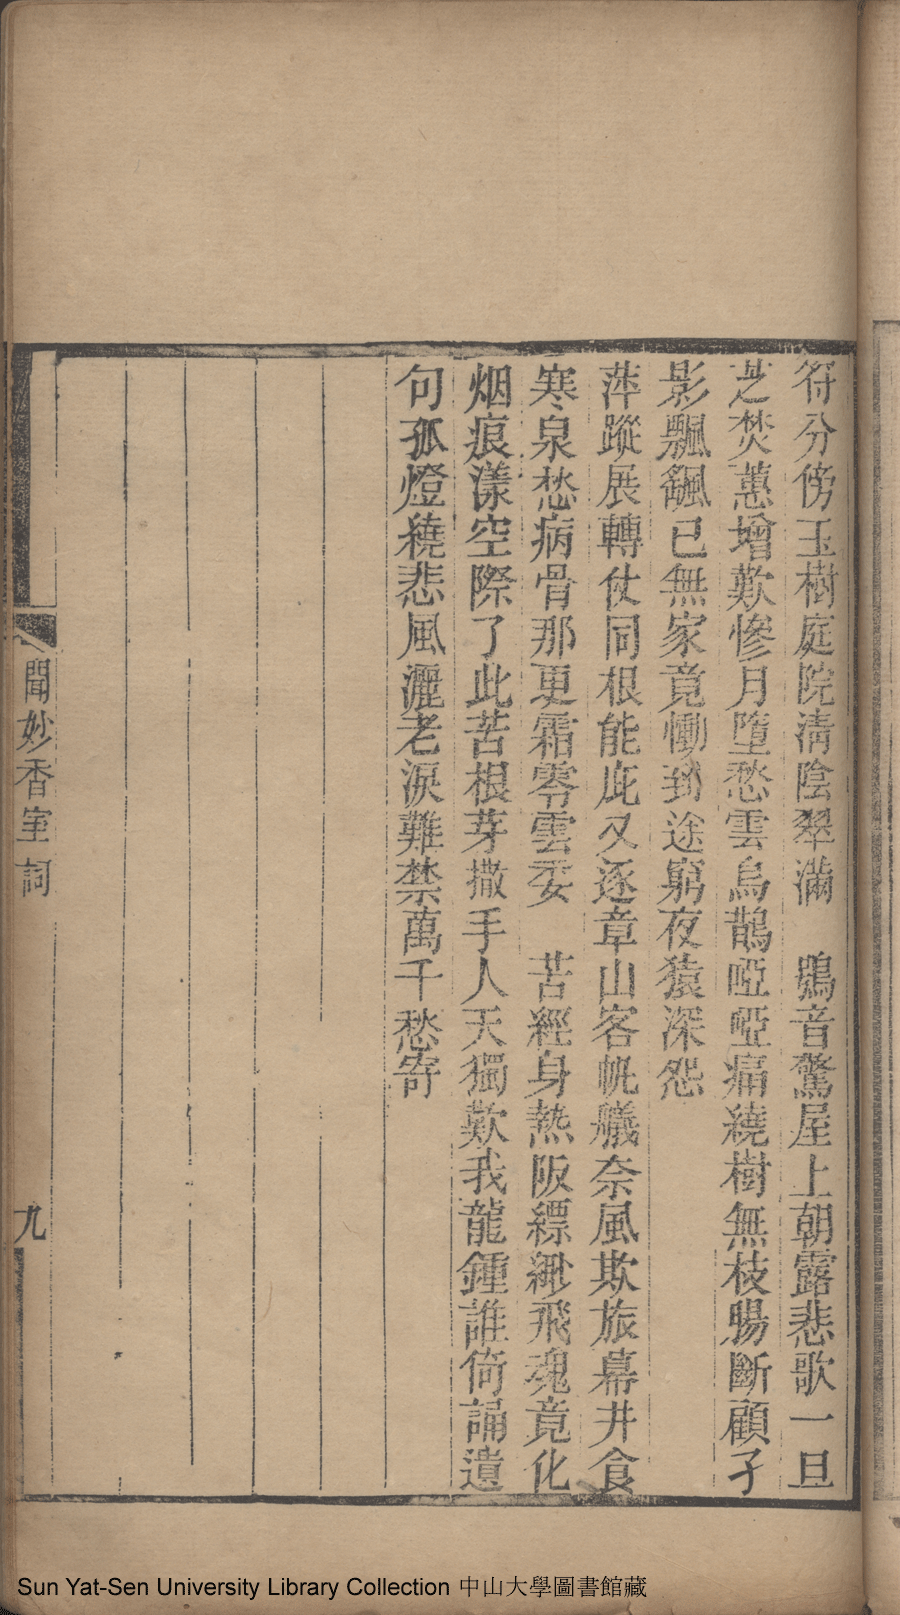 符分傍玉樹庭院清陰翠滿　鵶音驚屋上朝露悲歌一旦
芝焚蕙增歎慘月墮愁雲烏鵲啞啞痛繞樹無枝腸斷顧孑
影飄颻已無家竟慟到途窮夜猿深怨
萍蹤展轉仗同根能庇又逐章山客帆艤奈風欺旅幕井食
寒泉愁病骨那更霜零雲委　苦經身熱阪縹緲飛魂竟化
烟痕漾空際了此苦根芽撒手人天獨歎我龍鍾誰倚誦遺
句孤燈繞悲風灑老淚難禁萬千愁寄
聞妙香室詞
九
Sun Yat-Sen University Library Collection 中山大學圖書館藏